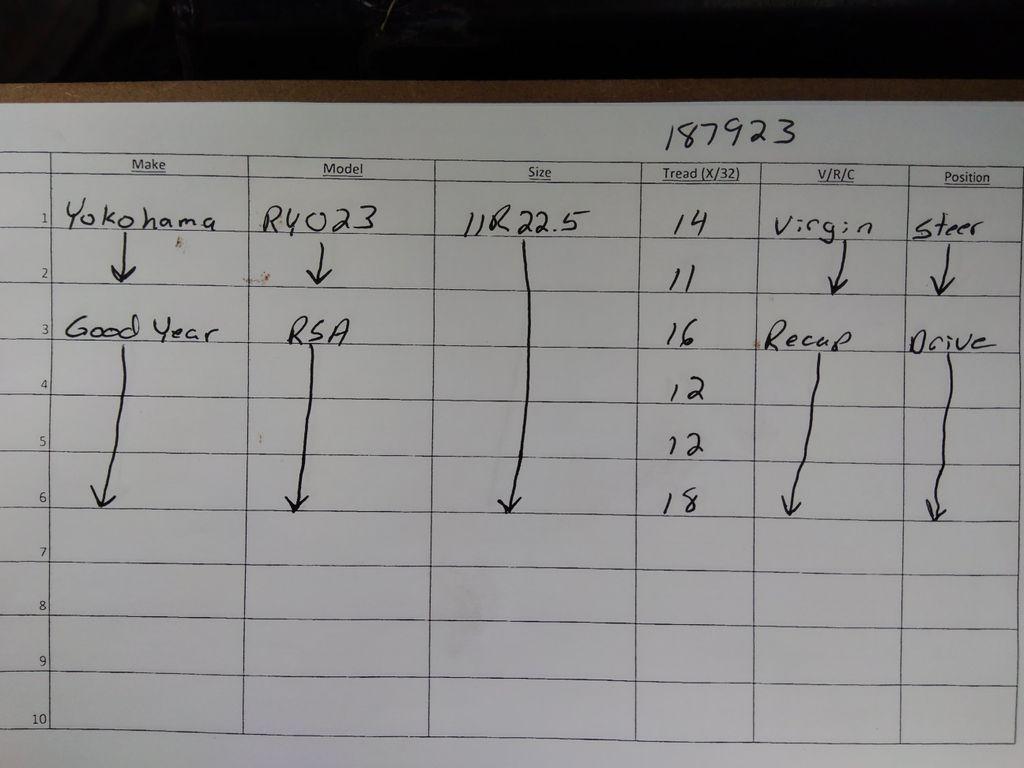 187923
Make Model Size Tread (X/32) V/R/C Position
1 Yokohama RY023 11R22.5 14 Virgin Steer
2 11
3 Good Year RSA 16 Recap Drive
4 12
5 12
6 18
7
8
9
10